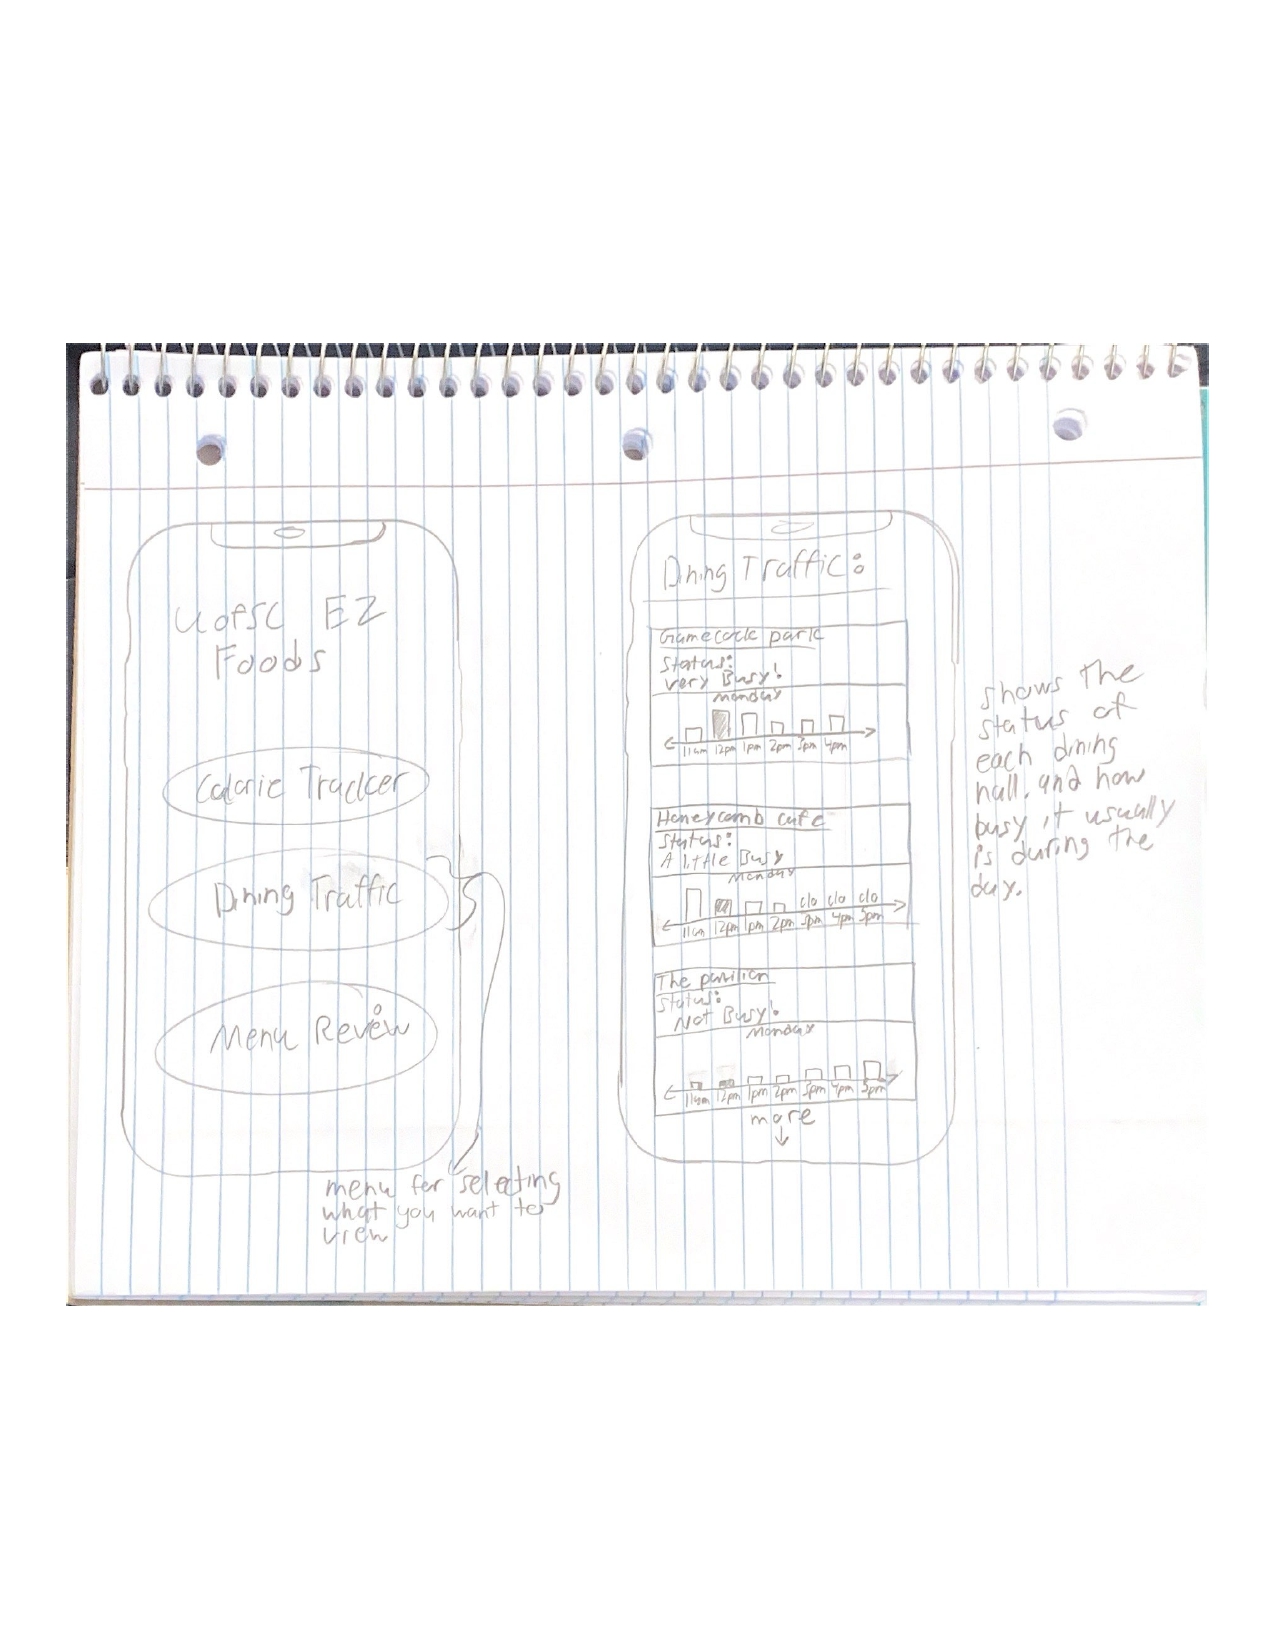 UofSC EZ
Foods
Calorie Tracker
Dining Traffic
Menu Revew
menu for selecting
what you want to
view
Dining Traffic:
Gamecock park
Status:
very Busy!
Monday
11am 12pm 1pm 2pm 3pm 4pm
Honeycomb cafe
Status:
A little Busy
Monday
clo clo clo
11am 12pm 1pm 2pm 3pm 4pm 5pm
The pavilion
Status:
Not Busy!
Monday
11am 12pm 1pm 2pm 3pm 4pm 5pm
more
shows the
status of
each dining
hall, and how
busy it usually
is during the
day.